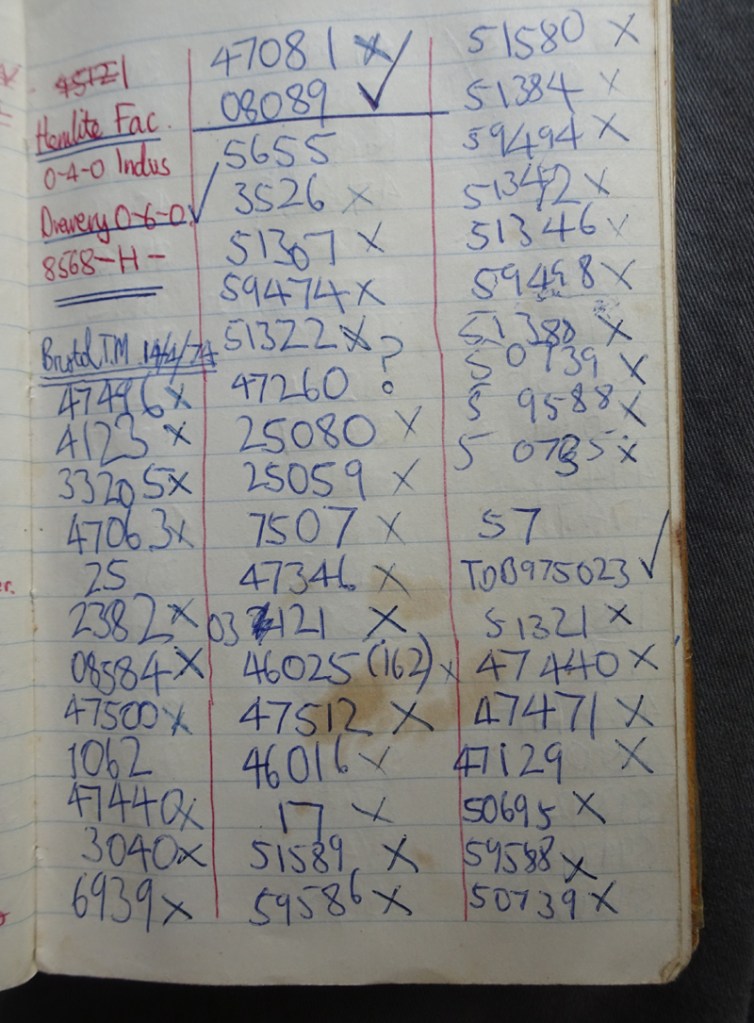 Hemlite Fac.
0-4-0 Indus
Drewery 0-6-0 ✓
8568-H-
Bristol T.M. 14/4/74
47496 x
4123 x
33205 x
47063 x
25
2382 x
08584 x
47500 x
1062
47440 x
3040 x
6939 x
47081 x
08089 ✓
5655
3526 x
51307 x
59474 x
51322 x
47260 ?
25080 x
25059 x
7507 x
47346 x
03 121 x
46025 (162) x
47512 x
46016 x
17 x
51589 x
59586 x
51580 x
51384 x
59494 x
51342 x
51346 x
59498 x
51388 x
50739 x
5 9588 x
5 07 5 x
57
TDB975023 ✓
51321 x
47440 x
47471 x
47129 x
50695 x
59588 x
50739 x